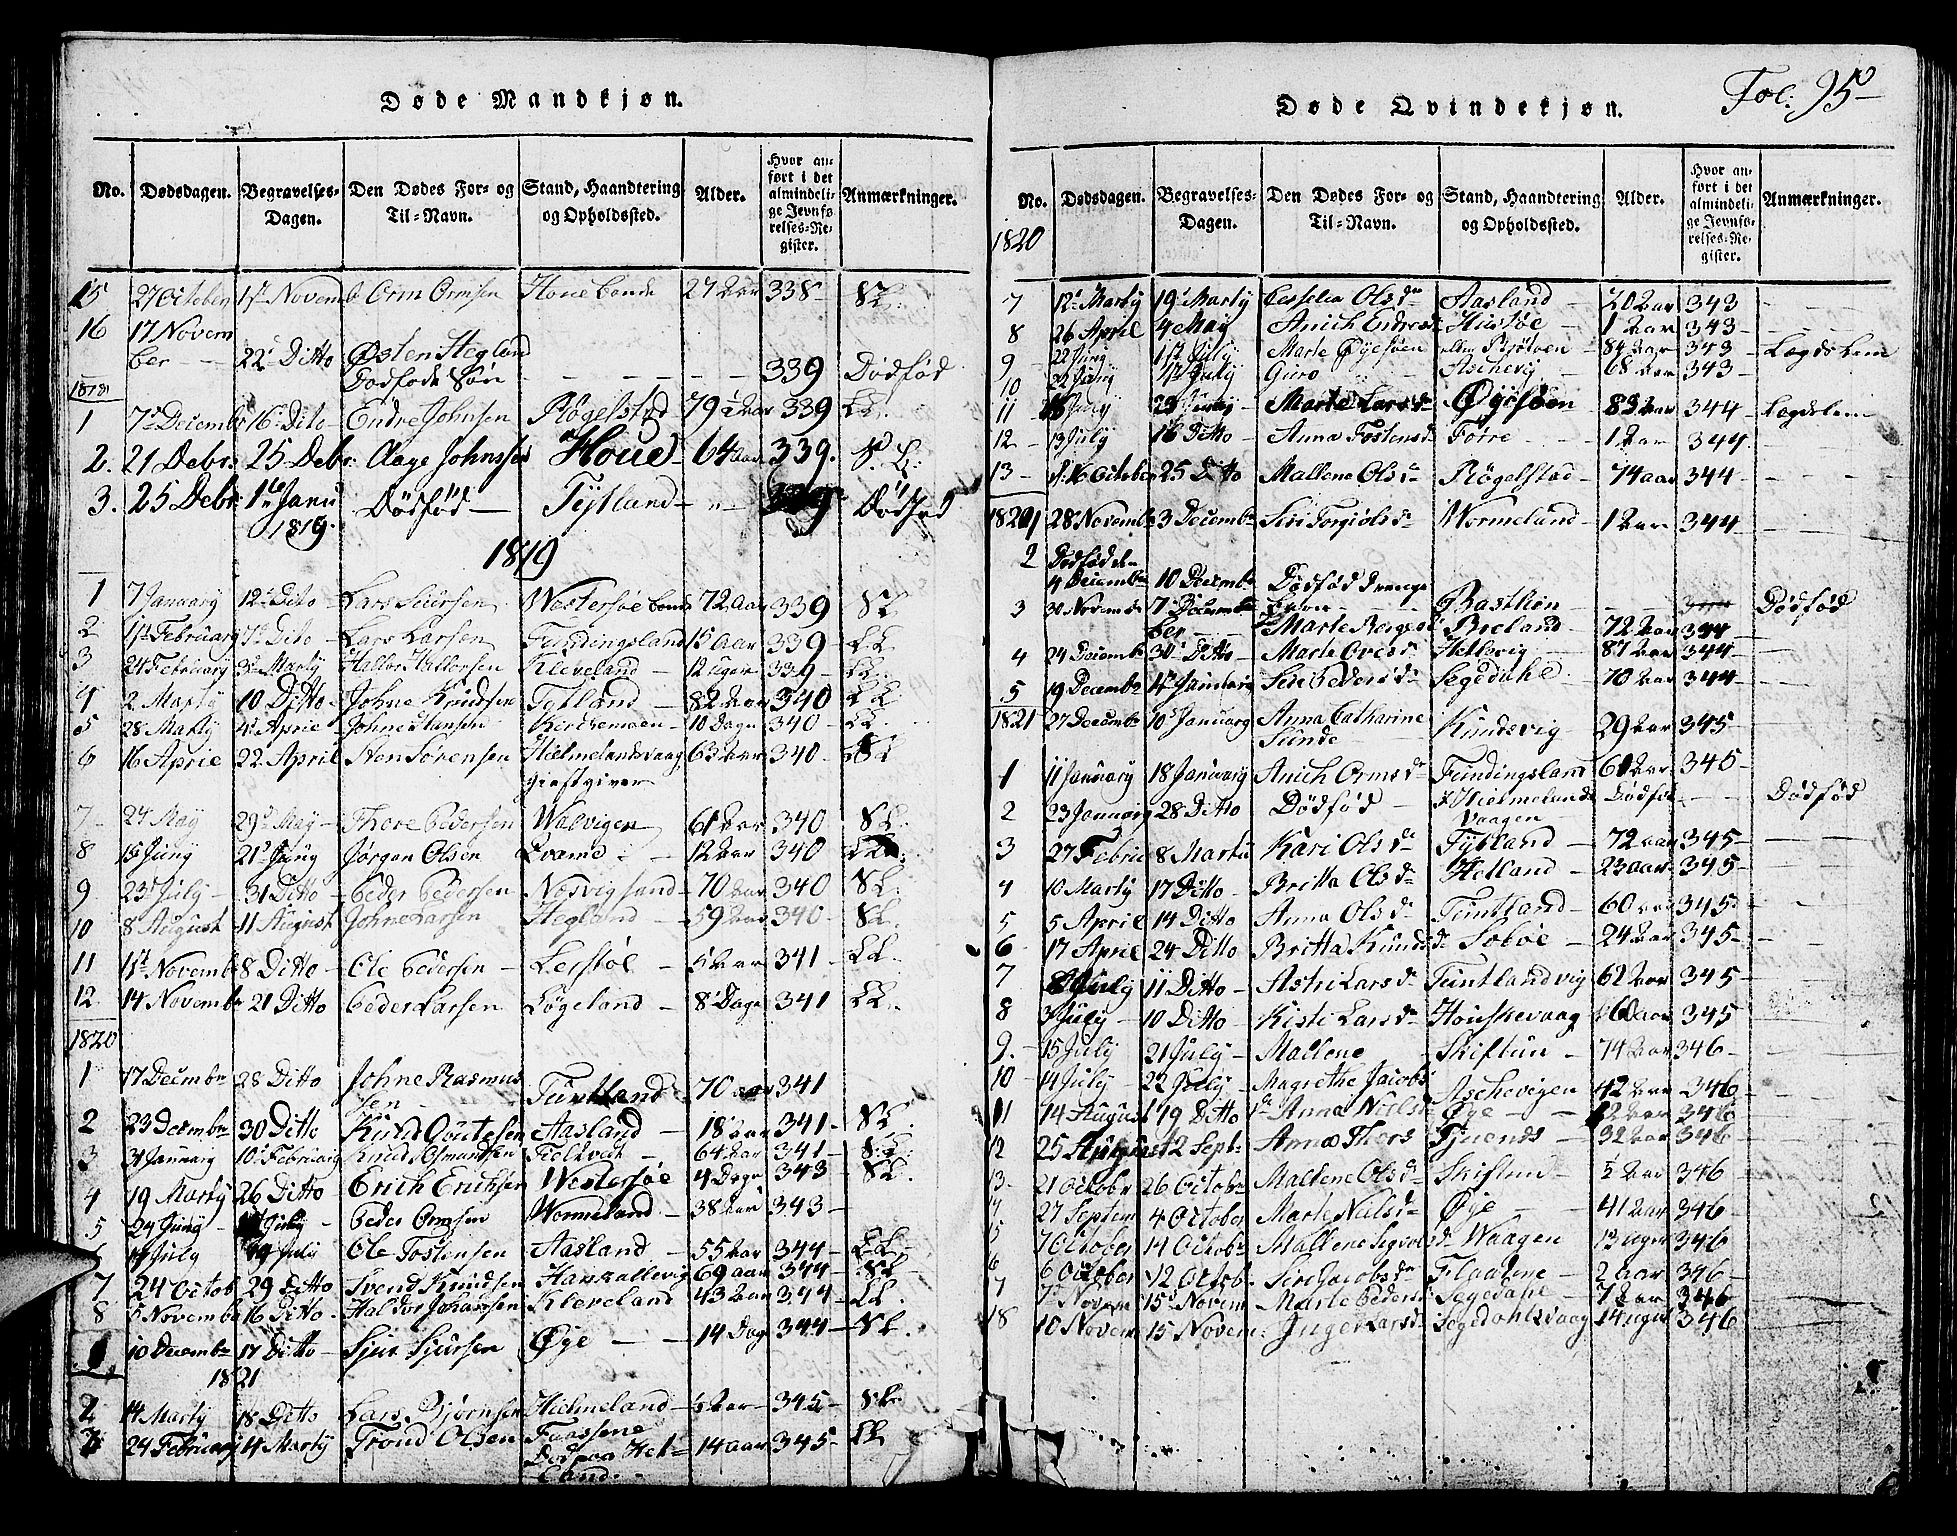 Døde Mandkjøn.
No. Dødsdagen. Begravelses-Dagen. Den Dødes For- og Til-Navn. Stand, Haandtering og Opholdssted. Alder. Hvor anført i det almindelige Jevnførelses-Register. Anmærkninger.
15 27 October 1st Novemb Orm Ormsen Houe bonde 27 Aar 338
16 17 Novem
ber 22 Ditto Østen Hegland
Dødføde Søn 339 Dødfød
1818
1 7 Decemb 16 Dito Endre Johnsen Røgelstad 79 Aar 339
2. 21 Debr. 25 Debr. Aage Johnssen Houe 64 Aar 339.
3. 25 Debr. 1te Janu Dødfød Tytland 339 Dødfød
1819.
1819
1 7 January 12 Dito Lars Siursen Westersøe bonde 72 Aar 339
2 1st February 7 Dito Lars Larsen Fundingsland 15 Aar 339
3 24 February 3 Marty Haldor Haldorsen Kleveland 12 uger 339
4 2 Marty 10 Ditto Johne Knudsen Tytland 82 Aar 340
5 28 Marty 4 Aprie Johne Hansen 10 Dage 340
6 16 Aprie 22 April Sørensen Hielmelandsvaag 63 Aar 340
giestgiver
7 24 May 29 May Thore Pedersen Walvigen 61 Aar 340
8 15 Juny 21 Juny Jørgen Olsen Kvame 12 Aar 340
9 23 July 31 Ditto Peder Pedersen Nosvigsand 70 Aar 340
10 8 August 11 August Johne Larsen Hegland 59 Aar 340
11 1st Novemb 8 Ditto Ole Pedersen Lerstøe 5 Aar 341
12 14 Novemb 21 Ditto Peder Larsen Løgeland 8 Dage 341
1820
1 17 Decembr 28 Ditto Johne Rasmus
sen Tuntland 70 aar 341
2 23 Decembr 30 Ditto Knud Aasland 18 Aar 341
3 31 January 10 February Knud Osmundsen Tioltveit 64 Aar 341
4 19 Marty 26 Ditto Erich Erichsen Westersøe 4 Dage 343
5 24 Juny July Peder Ormsen Wormeland 38 Aar 343
July 19 July Ole Tostensen Aasland 55 Aar 344
7 24 Octob 29 Ditto Svend Knudsen Hauskallevig 69 aar 344
8 5 Novemb 16 Ditto Haldor Johansen Kleveland 43 Aar 344
10 Decembr 17 Ditto Sjur Sjursen Øye 14 Dag 344
1821
2 14 Marty 18 Ditto Lars Bjørnsen Hielmeland Aar 345
3 24 February 4 Marty Trond Olsen Faassene
Død paa Hel-
land. 14 aar 345
Døde Qvindekjøn. Fol: 95
No. Dødsdagen. Begravelses-Dagen. Den Dødes For- og Til-Navn. Stand, Haandtering og Opholdssted. Alder. Hvor anført i det almindelige Jevnførelses-Register. Anmærkninger.
1820
7 12 Marty 19 Marty Olsdr Aasland 20 Aar 343
8 26 April 4 May Anich Endresd Hustøe 1 Aar 343
9 22 Juny 1st July Marte Øyesøen 84 Aar 343 Lægdslem
10 22 Juny July Guro Aschevig 68 Aar 343
11 Juny Marte Larsdr Øyesøen 83 Aar 344 Lægdslem
12 13 July 16 Ditto Anna Tostensd Førre 1 Aar 344
13 16 October 25 Ditto Mallene Olsdr Røgelstad 74 aar 344
1820/1 28 Novemb 3 Decembr Siri Torgiølsdr Wormeland 1 Aar 344
2 Dødfød den
4 Decembr 10 Decembr Dødfød Drenge
Bastlien Dødfød
3 30 Novem 7 Decembr Marte Bergesd Breland 72 Aar 344
4 24 Decembr 30 Ditto Marte Ovesdr Hettevig 87 Aar 344
5 19 Decembr January Siri Pedersdr Segedahl 70 Aar 344
1821 27 Decembr 10 January Anna Catharine
Sunde Kundsvig 29 Aar 345
1 11 January 18 January Anich Ormsdr Fundingsland 61 Aar 345
2 23 January 28 Ditto Dødfød Hielmelands
Vaagen Dødfød Dødfød
3 27 Febru 8 Marty Kari Olsdr Tytland 72 aar 345
4 10 Marty 17 Ditto Britta Olsdr Hetland 23 aar 345
5 5 April 14 Ditto Anna Olsdr Tuntland 60 Aar 345
6 17 April 24 Ditto Britta Knudsd Soløe 24 Aar 345
7 July 11 Ditto Astri Larsdr Tuntlandvig 62 Aar 345
8 3 July 10 Ditto Kisti Larsdr Houskevaag 60 aar 345
9. 15 July 21 July Mallene Skiftun 74 Aar 346
10 14 July 22 July Magrethe Jacobs Aschevigen 42 Aar 346
11 14 August 19 Ditto Anna Nielsd Øye Aar 346
12 25 August 2 Septr Anna Thors Tjuends 32 Aar 346
13 21 Octobr 26 Octobr Mallene Olsdr Skiftun ½ Aar 346
27 Septem 4 October Marte Nielsdr Øye 41 Aar 346
5 7 October 14 Octobr Mallene Waagen 13 uger 346
6 6 October 12 Octobr Siri Jacobsdr Flaatene 2 aar 346
7 7 Novem 15 Novem Marte Pedersd Segedahl 7 Aar 346
18 10 Novem 15 Novem Inger Larsdr Segedahlsvaag 14 uger 346